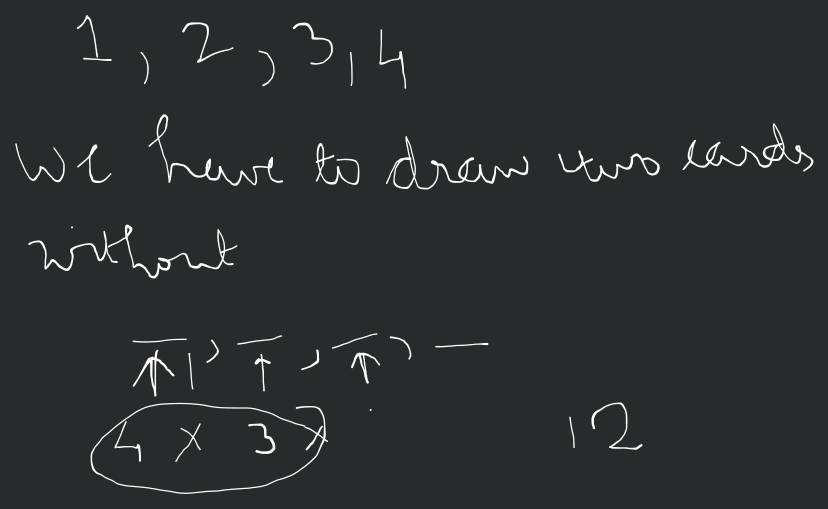 1, 2, 3, 4
We have to draw two cards
without
4 x 3 x 12